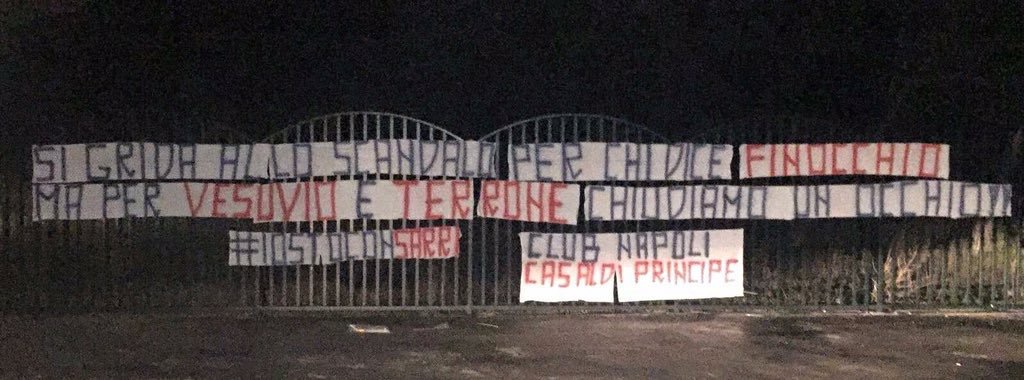 SI GRIDA ALLO SCANDALO PER CHI DICE FINOCCHIO
MA PER VESUVIO E TERRONE CHIUDIAMO UN OCCHIO!!!
#IOSTOCONSARRI
CLUB NAPOLI
CASALDI PRINCIPE